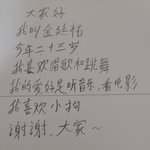 大家好
我叫金延祐
今年二十三岁
我喜欢唱歌和跳舞
我的爱好是听音乐、看电影
我喜欢小狗
谢谢大家~